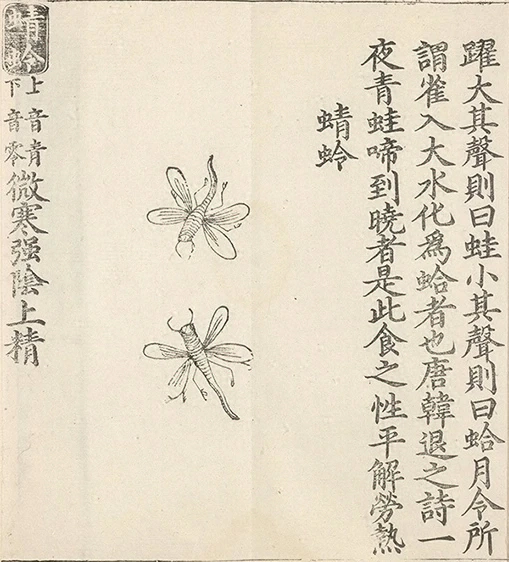 躍大其聲則曰蛙小其聲則曰蛤月令所
謂雀入大水化為蛤者也唐韓退之詩一
夜青蛙啼到曉者是此食之性平解勞熱
蜻蛉
蜻蛉
上音青
下音零
微寒强陰上精